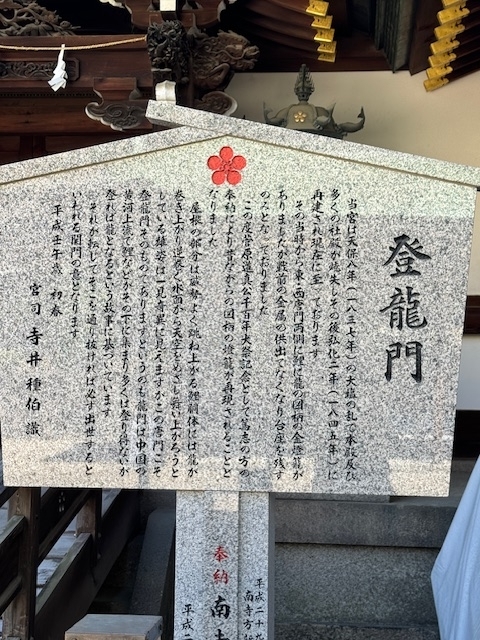 登龍門
当宮は天保八年(一八三七年)の大塩の乱で本殿及び
多くの社殿が焼失しその後弘化二年(一八四五年)に
再建され現在に至っております
その当時から東・西唐門両側に鯉に龍の図柄の金燈籠が
ありましたが戦前の金属の供出で亡くなり台座を残す
のみとなっておりました
この度菅原道真公千百年大祭記念として篤志の方の
奉納により昔ながらの図柄の燈籠が再現されることと
なりました
屋根の部分は威勢よく跳ね上がる鯉胴体には龍が
巻き上がり逆巻く水面から天空をめざし舞い上がろうと
している雄姿は一見奇異に見えますがこの唐門こそ
登龍門そのものでありますというのも龍門は中国の
黄河上流で鯉などがその下に集まり多くは登り得ないが
登れば龍となるという故事に基づいています
それが転じてそこを通り抜ければ必ず出世すると
いわれる関門のこととなります
平成壬午歳 初春
宮司 寺井種伯 識
奉納
平成二十九
南寺方
南
平成二